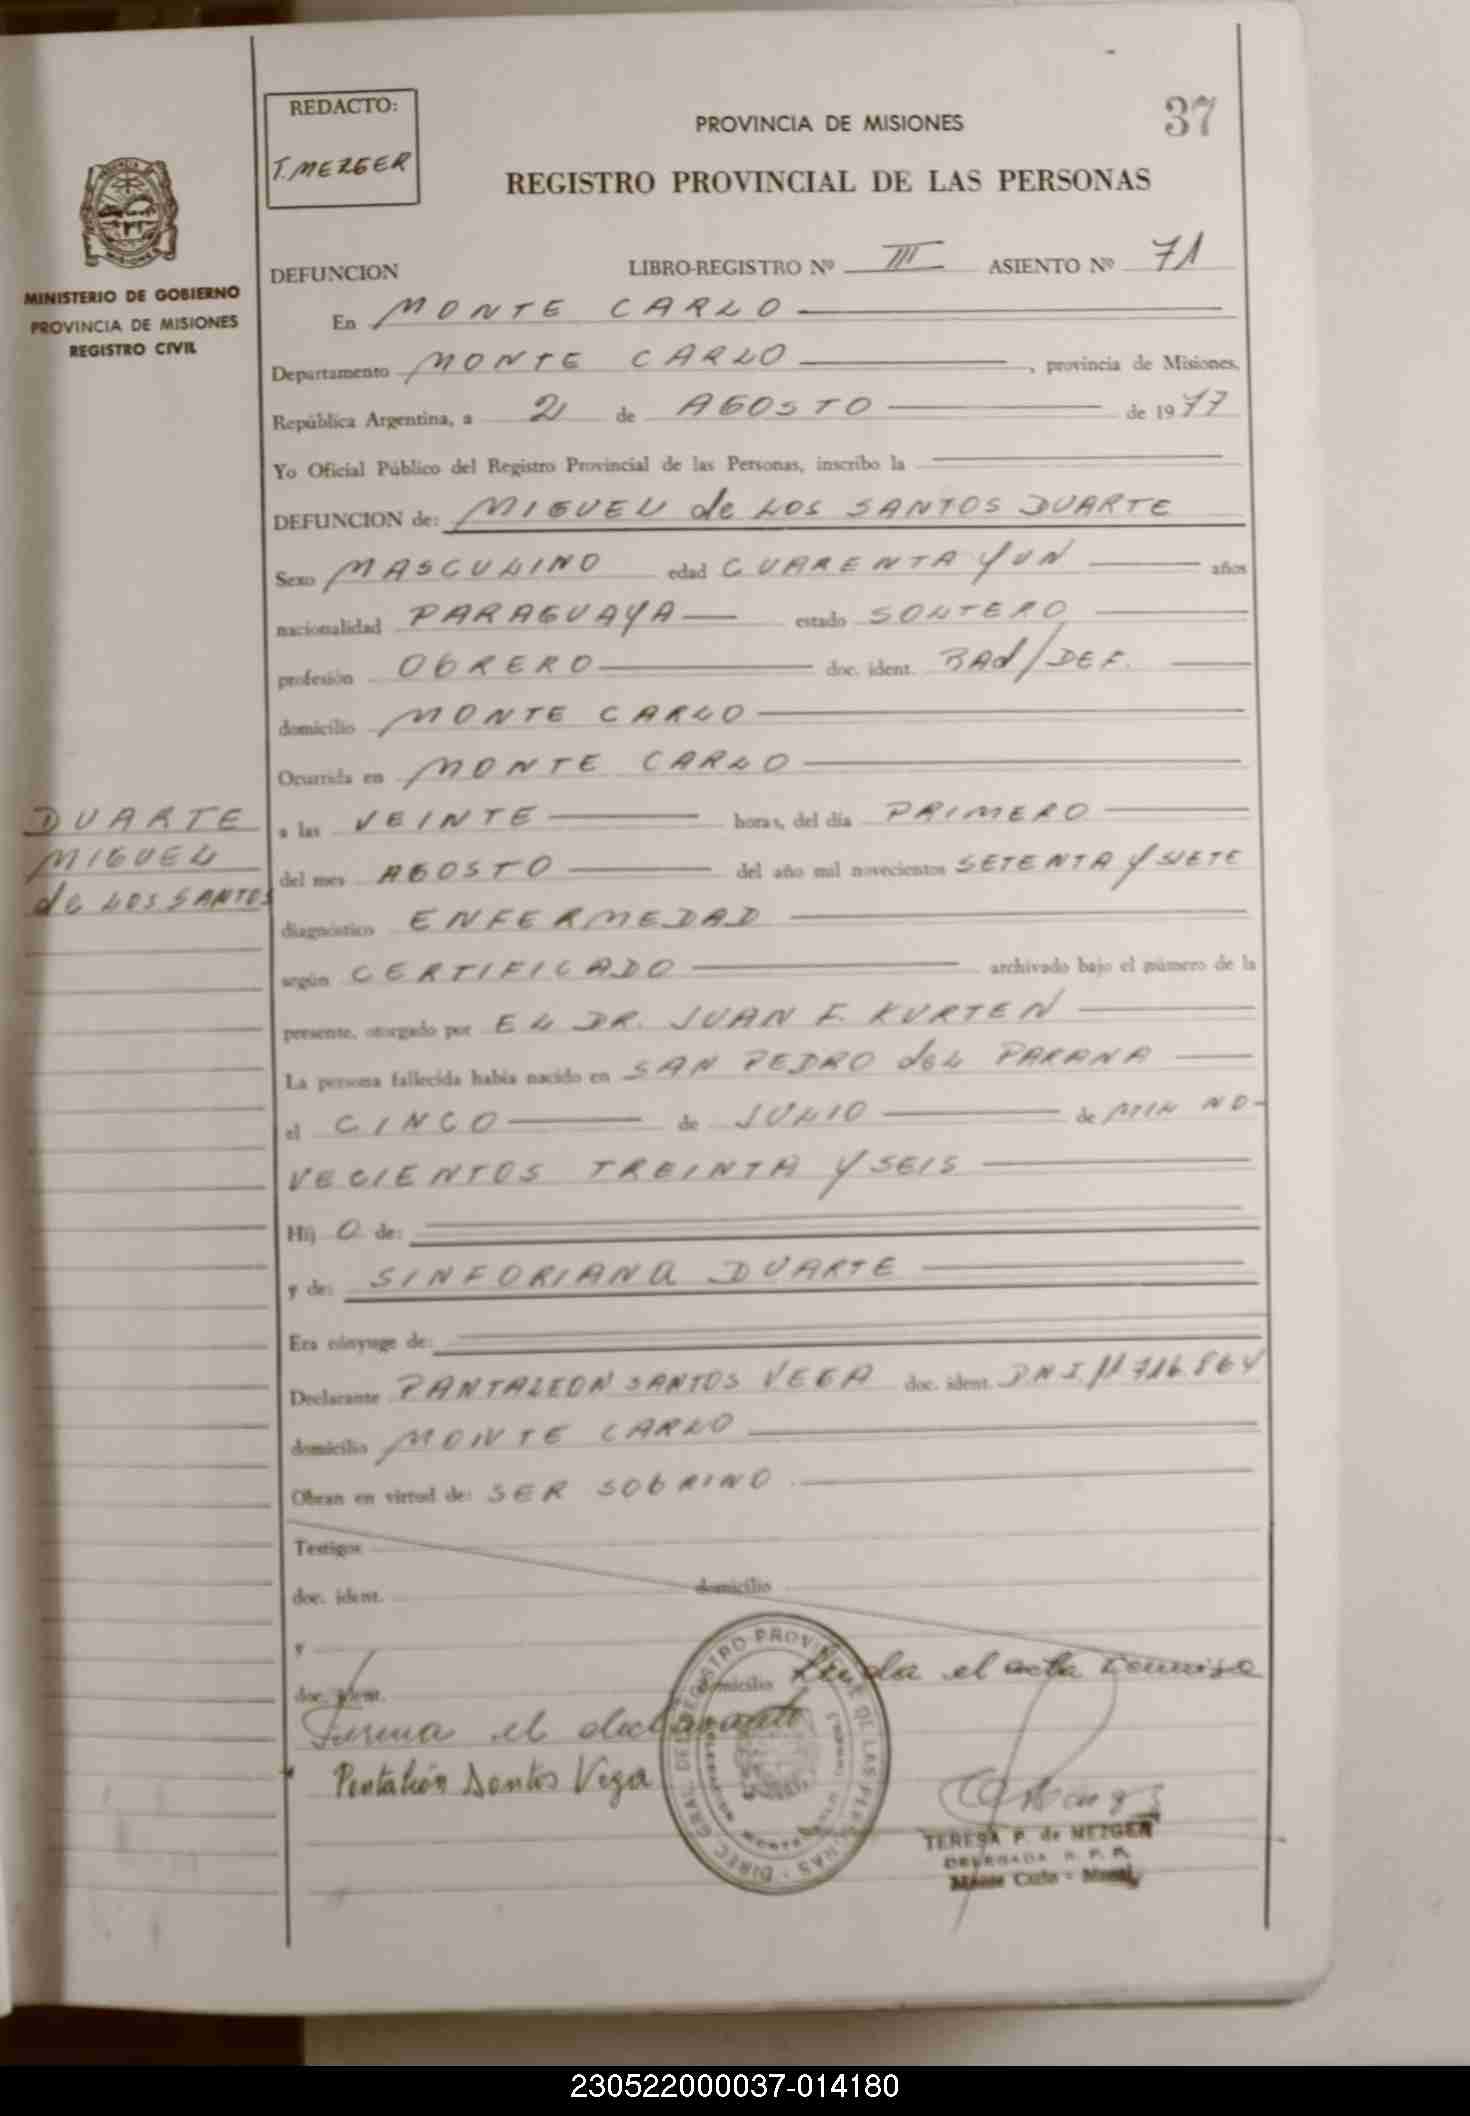 REDACTO:
T. MEZGER
37
PROVINCIA DE MISIONES
REGISTRO PROVINCIAL DE LAS PERSONAS
MINISTERIO DE GOBIERNO
PROVINCIA DE MISIONES
REGISTRO CIVIL
DEFUNCION LIBRO-REGISTRO Nº III ASIENTO Nº 71
En MONTE CARLO
Departamento MONTE CARLO, provincia de Misiones,
República Argentina, a 2 de AGOSTO de 1977
Yo Oficial Público del Registro Provincial de las Personas, inscribo la
DEFUNCION de: MIGUEL de LOS SANTOS DUARTE
Sexo MASCULINO edad CUARENTA Y UN años
nacionalidad PARAGUAYA estado SOLTERO
profesión OBRERO doc. ident. BAJ/DEF.
domicilio MONTE CARLO
Ocurrida en MONTE CARLO
DUARTE
MIGUEL
de LOS SANTOS
a las VEINTE horas, del día PRIMERO
del mes AGOSTO del año mil novecientos SETENTA Y SIETE
diagnóstico ENFERMEDAD
según CERTIFICADO archivado bajo el número de la
presente, otorgado por EL DR. JUAN F. KURTEN
La persona fallecida había nacido en SAN PEDRO deL PARANA
el CINCO de JULIO de MIL NO-
VECIENTOS TREINTA Y SEIS
Hij O de:
y de: SINFORIANA DUARTE
Era cónyuge de:
Declarante PANTALEON SANTOS VEGA doc. ident. DNI 11.716.864
domicilio MONTE CARLO
Obran en virtud de: SER SOBRINO.
Testigos
doc. ident. domicilio
y
doc. ident. domicilio Leída el acta
Firma el declarante
Pentaleón Santos Vega
DIREC. GRAL. DEL REGISTRO PROVINCIAL DE LAS PERSONAS
TERESA P. de MEZGER
DELEGADA R. P. P.
Monte Carlo - Mnes.
230522000037-014180